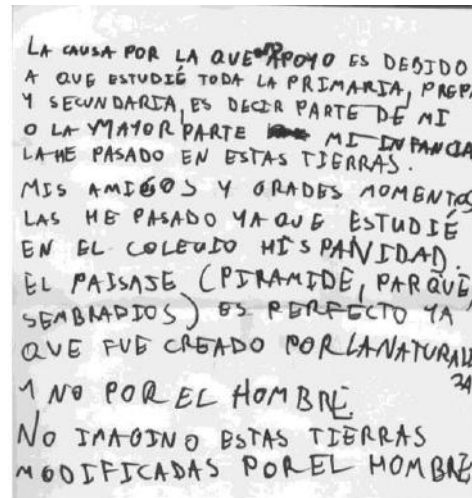 LA CAUSA POR LA QUE NO APOYO ES DEBIDO
A QUE ESTUDIÉ TODA LA PRIMARIA, PREPA
Y SECUNDARIA, ES DECIR PARTE DE MI
O LA MAYOR PARTE MI INFANCIA
LA HE PASADO EN ESTAS TIERRAS.
MIS AMIGOS Y GRADES MOMENTOS
LAS HE PASADO YA QUE ESTUDIÉ
EN EL COLEGIO HISPANIDAD.
EL PAISAJE (PIRAMIDE, PARQUE,
SEMBRADIOS) ES PERFECTO YA
QUE FUE CREADO POR LA NATURALEZA
Y NO POR EL HOMBRE.
NO IMAGINO ESTAS TIERRAS
MODIFICADAS POR EL HOMBRE